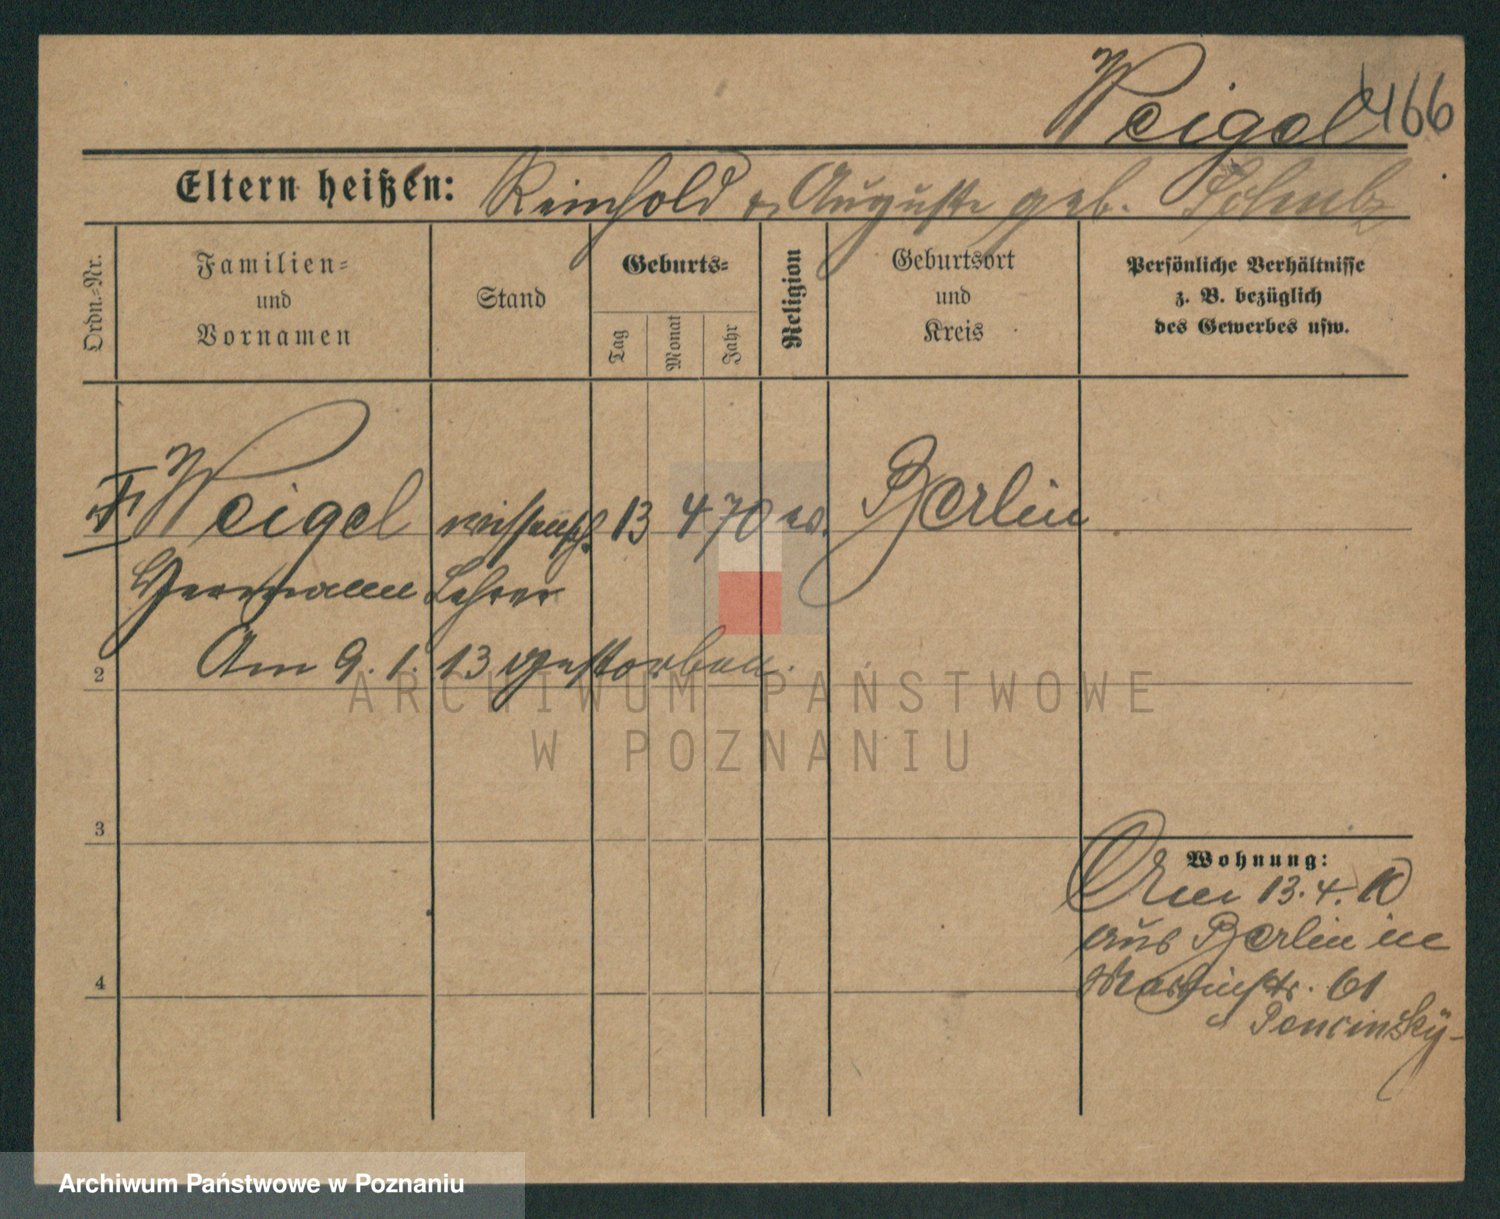 Weigel 466
Eltern heißen: Reinhold u. Auguste geb.
Ordn.-Nr.
Familien-
und
Vornamen
Stand
Geburts-
Tag
Monat
Jahr
Religion
Geburtsort
und
Kreis
Persönliche Verhältnisse
z. B. bezüglich
des Gewerbes usw.
Weigel wissensch. 13 4 70 ev. Berlin
Hermann Lehrer
2 Am 9. 1. 13 gestorben.
ARCHIWUM PAŃSTWOWE
W POZNANIU
3
Wohnung:
13. 4. 10
aus Berlin in
Martinstr. 61
4
Archiwum Państwowe w Poznaniu